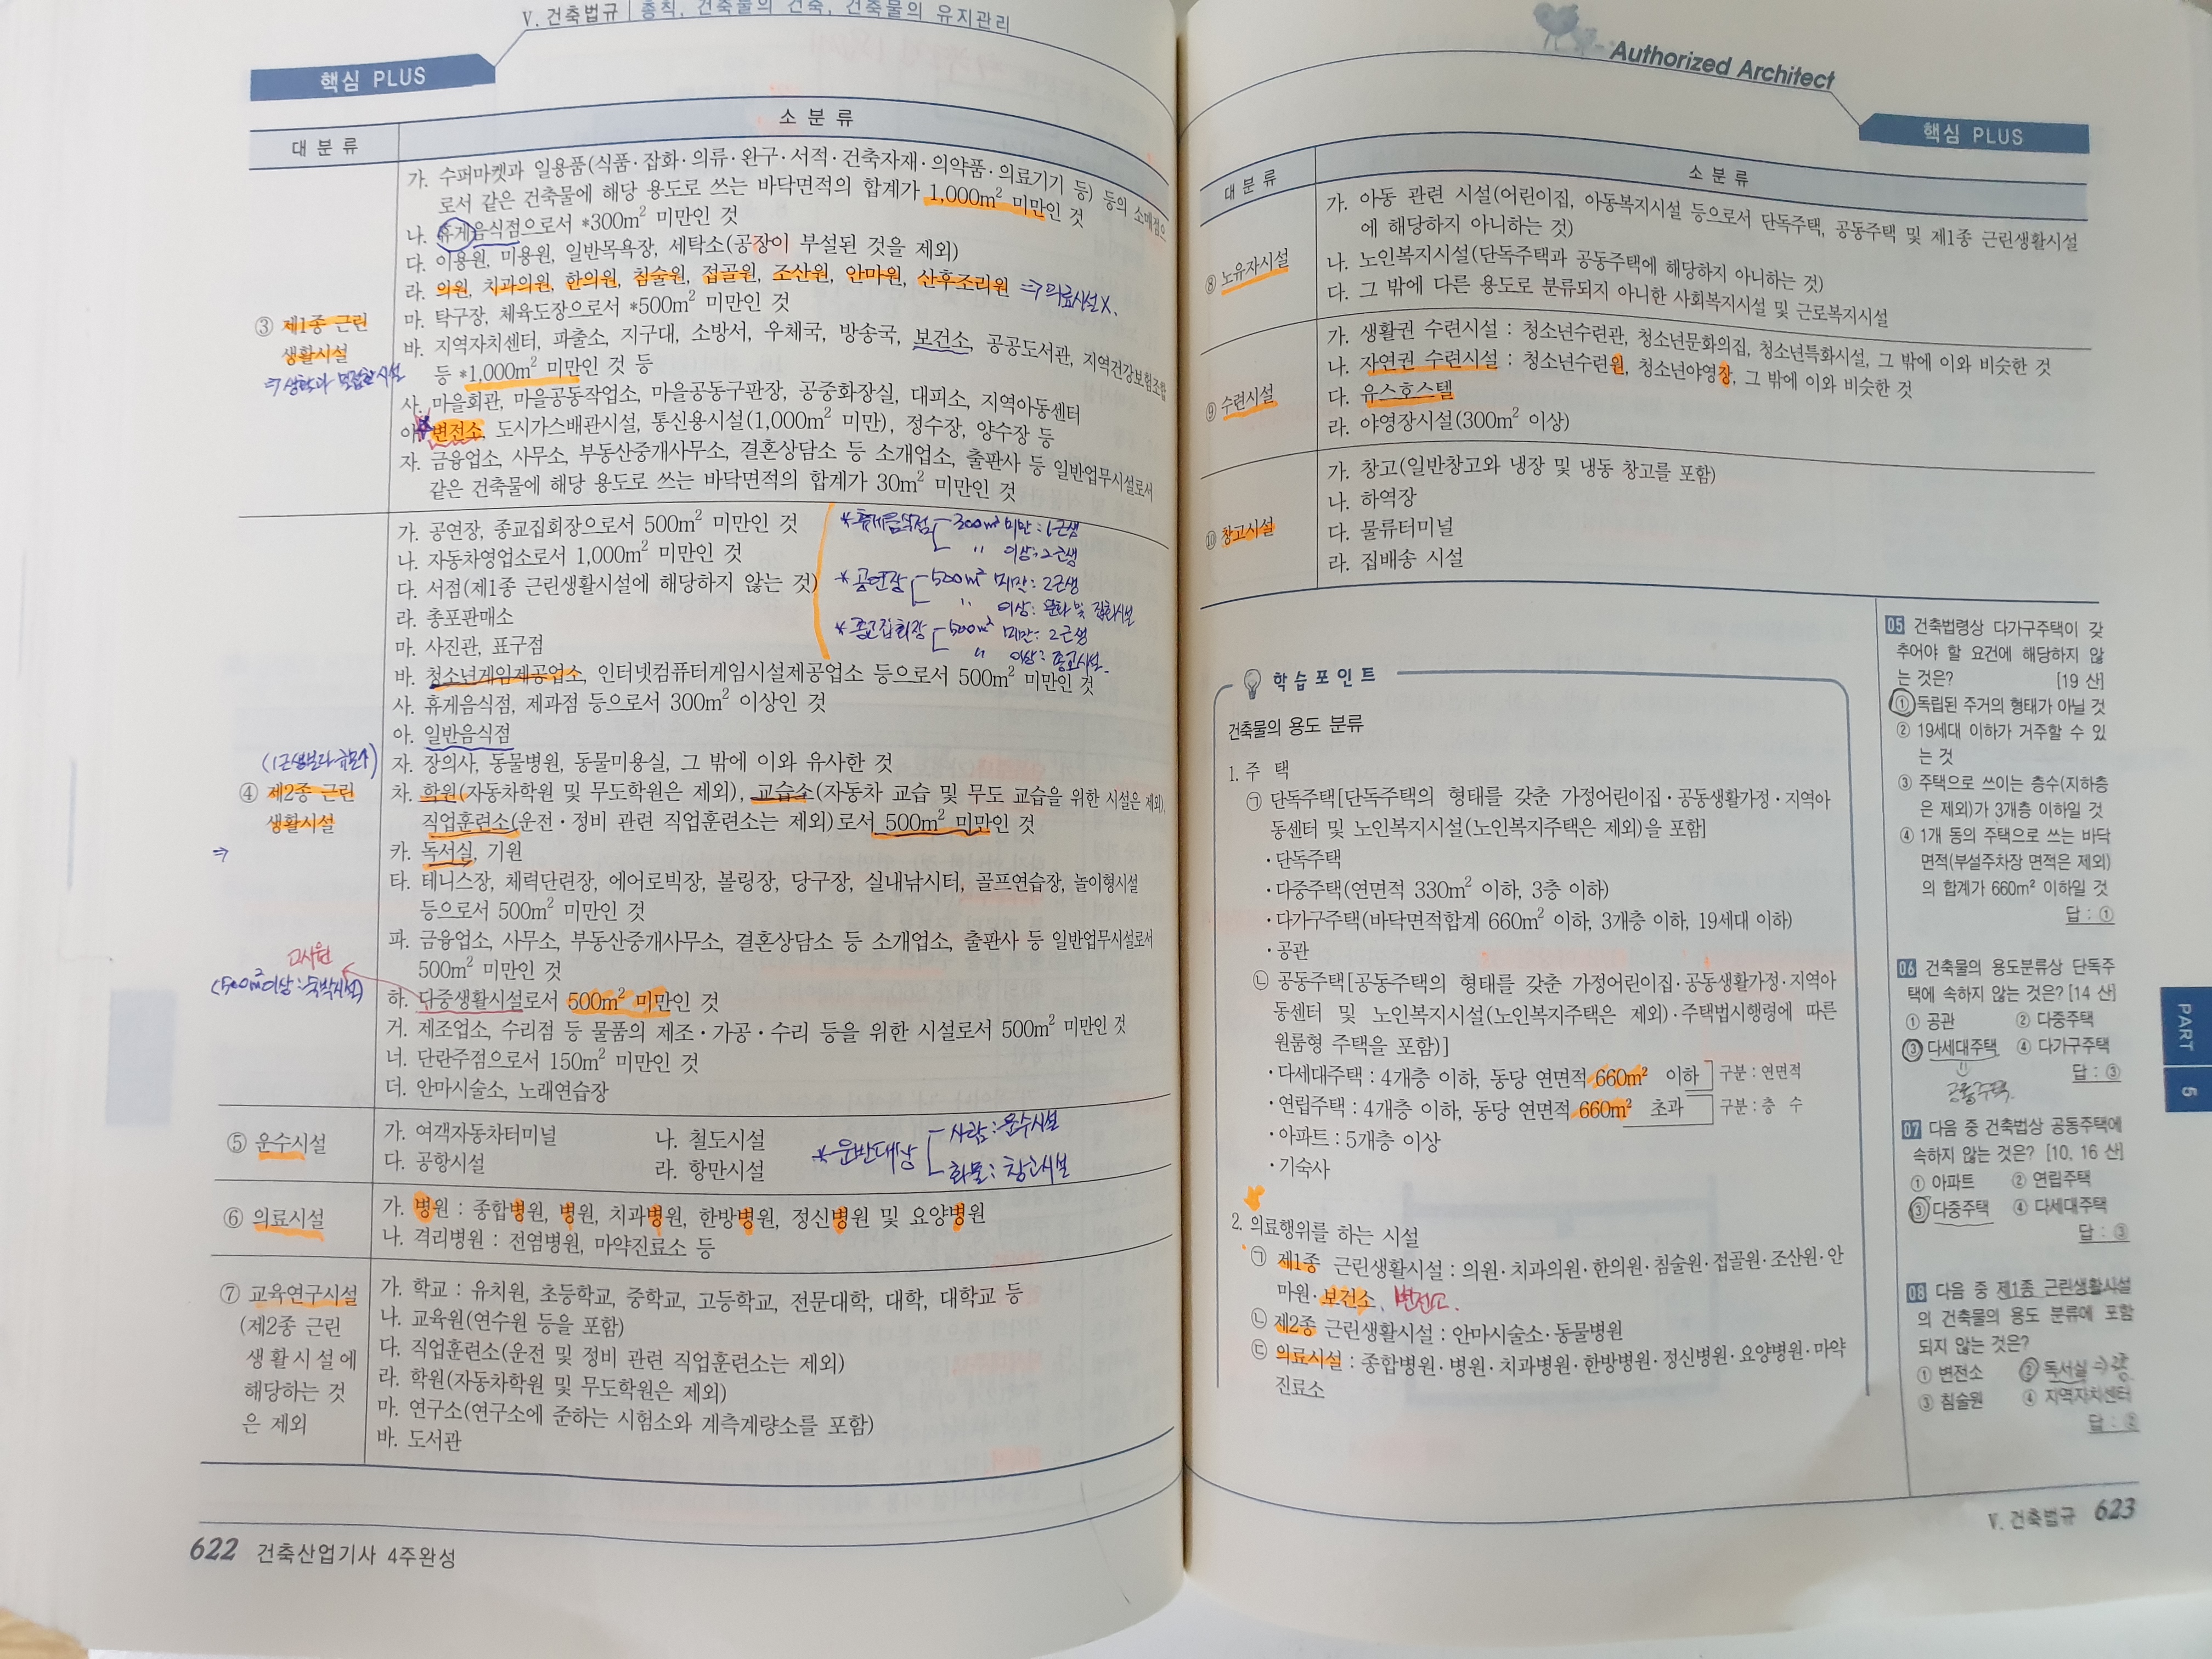 V. 건축법규 | 총칙, 건축물의 건축, 건축물의 유지관리
핵심 PLUS
대 분 류
소 분 류
③ 제1종 근린
생활시설
가. 수퍼마켓과 일용품(식품·잡화·의류·완구·서적·건축자재·의약품·의료기기 등) 등의 소매점으
로서 같은 건축물에 해당 용도로 쓰는 바닥면적의 합계가 1,000m² 미만인 것
나. 휴게음식점으로서 *300m² 미만인 것
다. 이용원, 미용원, 일반목욕장, 세탁소(공장이 부설된 것을 제외)
라. 의원, 치과의원, 한의원, 침술원, 접골원, 조산원, 안마원, 산후조리원 ⇒ 의료시설 X.
마. 탁구장, 체육도장으로서 *500m² 미만인 것
바. 지역자치센터, 파출소, 지구대, 소방서, 우체국, 방송국, 보건소, 공공도서관, 지역건강보험조합
등 *1,000m² 미만인 것 등
사. 마을회관, 마을공동작업소, 마을공동구판장, 공중화장실, 대피소, 지역아동센터
아. 변전소, 도시가스배관시설, 통신용시설(1,000m² 미만), 정수장, 양수장 등
자. 금융업소, 사무소, 부동산중개사무소, 결혼상담소 등 소개업소, 출판사 등 일반업무시설로서
같은 건축물에 해당 용도로 쓰는 바닥면적의 합계가 30m² 미만인 것
④ 제2종 근린
생활시설
⇒
고시원
(500m² 이상 : 숙박시설)
가. 공연장, 종교집회장으로서 500m² 미만인 것
나. 자동차영업소로서 1,000m² 미만인 것
다. 서점(제1종 근린생활시설에 해당하지 않는 것)
라. 총포판매소
마. 사진관, 표구점
바. 청소년게임제공업소, 인터넷컴퓨터게임시설제공업소 등으로서 500m² 미만인 것
사. 휴게음식점, 제과점 등으로서 300m² 이상인 것
아. 일반음식점
자. 장의사, 동물병원, 동물미용실, 그 밖에 이와 유사한 것
차. 학원(자동차학원 및 무도학원은 제외), 교습소(자동차 교습 및 무도 교습을 위한 시설은 제외),
직업훈련소(운전·정비 관련 직업훈련소는 제외)로서 500m² 미만인 것
카. 독서실, 기원
타. 테니스장, 체력단련장, 에어로빅장, 볼링장, 당구장, 실내낚시터, 골프연습장, 놀이형시설
등으로서 500m² 미만인 것
파. 금융업소, 사무소, 부동산중개사무소, 결혼상담소 등 소개업소, 출판사 등 일반업무시설로서
500m² 미만인 것
하. 다중생활시설로서 500m² 미만인 것
거. 제조업소, 수리점 등 물품의 제조·가공·수리 등을 위한 시설로서 500m² 미만인 것
너. 단란주점으로서 150m² 미만인 것
더. 안마시술소, 노래연습장
* 휴게음식점 300m² 미만 : 1근생
〃 이상 : 2근생
* 공연장 500m² 미만 : 2근생
〃 이상 : 문화 및 집회시설
* 종교집회장 500m² 미만 : 2근생
〃 이상 : 종교시설.
⑤ 운수시설
가. 여객자동차터미널 나. 철도시설
다. 공항시설 라. 항만시설
* 운반대상 사람 : 운수시설
화물 : 창고시설
⑥ 의료시설
가. 병원 : 종합병원, 병원, 치과병원, 한방병원, 정신병원 및 요양병원
나. 격리병원 : 전염병원, 마약진료소 등
⑦ 교육연구시설
(제2종 근린
생활시설에
해당하는 것
은 제외
가. 학교 : 유치원, 초등학교, 중학교, 고등학교, 전문대학, 대학, 대학교 등
나. 교육원(연수원 등을 포함)
다. 직업훈련소(운전 및 정비 관련 직업훈련소는 제외)
라. 학원(자동차학원 및 무도학원은 제외)
마. 연구소(연구소에 준하는 시험소와 계측계량소를 포함)
바. 도서관
622 건축산업기사 4주완성
Authorized Architect
핵심 PLUS
대 분 류
소 분 류
⑧ 노유자시설
가. 아동 관련 시설(어린이집, 아동복지시설 등으로서 단독주택, 공동주택 및 제1종 근린생활시설
에 해당하지 아니하는 것)
나. 노인복지시설(단독주택과 공동주택에 해당하지 아니하는 것)
다. 그 밖에 다른 용도로 분류되지 아니한 사회복지시설 및 근로복지시설
⑨ 수련시설
가. 생활권 수련시설 : 청소년수련관, 청소년문화의집, 청소년특화시설, 그 밖에 이와 비슷한 것
나. 자연권 수련시설 : 청소년수련원, 청소년야영장, 그 밖에 이와 비슷한 것
다. 유스호스텔
라. 야영장시설(300m² 이상)
⑩ 창고시설
가. 창고(일반창고와 냉장 및 냉동 창고를 포함)
나. 하역장
다. 물류터미널
라. 집배송 시설
학습포인트
건축물의 용도 분류
1. 주 택
㉠ 단독주택[단독주택의 형태를 갖춘 가정어린이집·공동생활가정·지역아
동센터 및 노인복지시설(노인복지주택은 제외)을 포함]
·단독주택
·다중주택(연면적 330m² 이하, 3층 이하)
·다가구주택(바닥면적합계 660m² 이하, 3개층 이하, 19세대 이하)
·공관
㉡ 공동주택[공동주택의 형태를 갖춘 가정어린이집·공동생활가정·지역아
동센터 및 노인복지시설(노인복지주택은 제외)·주택법시행령에 따른
원룸형 주택을 포함)]
·다세대주택 : 4개층 이하, 동당 연면적 660m² 이하 구분 : 연면적
·연립주택 : 4개층 이하, 동당 연면적 660m² 초과 구분 : 층 수
·아파트 : 5개층 이상
·기숙사
2. 의료행위를 하는 시설
㉠ 제1종 근린생활시설 : 의원·치과의원·한의원·침술원·접골원·조산원·안
마원·보건소, 변전소.
㉡ 제2종 근린생활시설 : 안마시술소·동물병원
㉢ 의료시설 : 종합병원·병원·치과병원·한방병원·정신병원·요양병원·마약
진료소
05 건축법령상 다가구주택이 갖
추어야 할 요건에 해당하지 않
는 것은? [19 산]
① 독립된 주거의 형태가 아닐 것
② 19세대 이하가 거주할 수 있
는 것
③ 주택으로 쓰이는 층수(지하층
은 제외)가 3개층 이하일 것
④ 1개 동의 주택으로 쓰는 바닥
면적(부설주차장 면적은 제외)
의 합계가 660m² 이하일 것
답 : ①
06 건축물의 용도분류상 단독주
택에 속하지 않는 것은? [14 산]
① 공관 ② 다중주택
③ 다세대주택 ④ 다가구주택
답 : ③
공동주택.
07 다음 중 건축법상 공동주택에
속하지 않는 것은? [10, 16 산]
① 아파트 ② 연립주택
③ 다중주택 ④ 다세대주택
답 : ③
08 다음 중 제1종 근린생활시설
의 건축물의 용도 분류에 포함
되지 않는 것은?
① 변전소 ② 독서실
③ 침술원 ④ 지역자치센터
답 : ②
PART 5
V. 건축법규 623